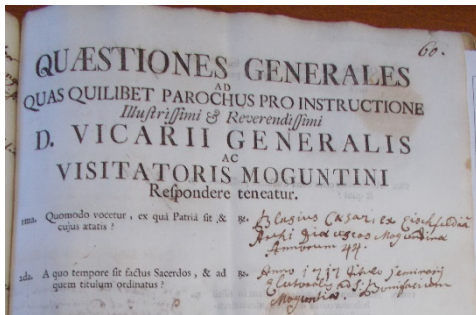 60.
QUÆSTIONES GENERALES
AD
QUAS QUILIBET PAROCHUS PRO INSTRUCTIONE
Illustrissimi & Reverendissimi
D. VICARII GENERALIS
AC
VISITATORIS MOGUNTINI
Respondere teneatur.
1ma. Quomodo vocetur, ex quâ Patriâ sit, & cujus ætatis?
Blasius Cæsar, ex Eischfeldia
Archi Diæceseos Moguntina
Annorum 44.
2da. A quo tempore sit factus Sacerdos, & ad quem titulum ordinatus?
Anno 1717 titulo seminarij
Electoralis ad S. Bonifacium
Moguntiæ.